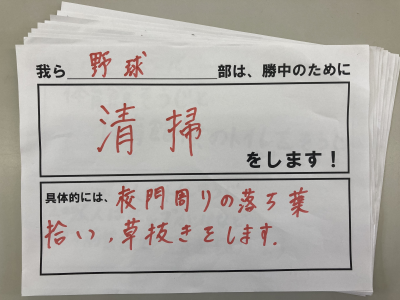 我ら 野球 部は、勝中のために
清掃
をします！
具体的には、校門周りの落ち葉
拾い、草抜きをします.